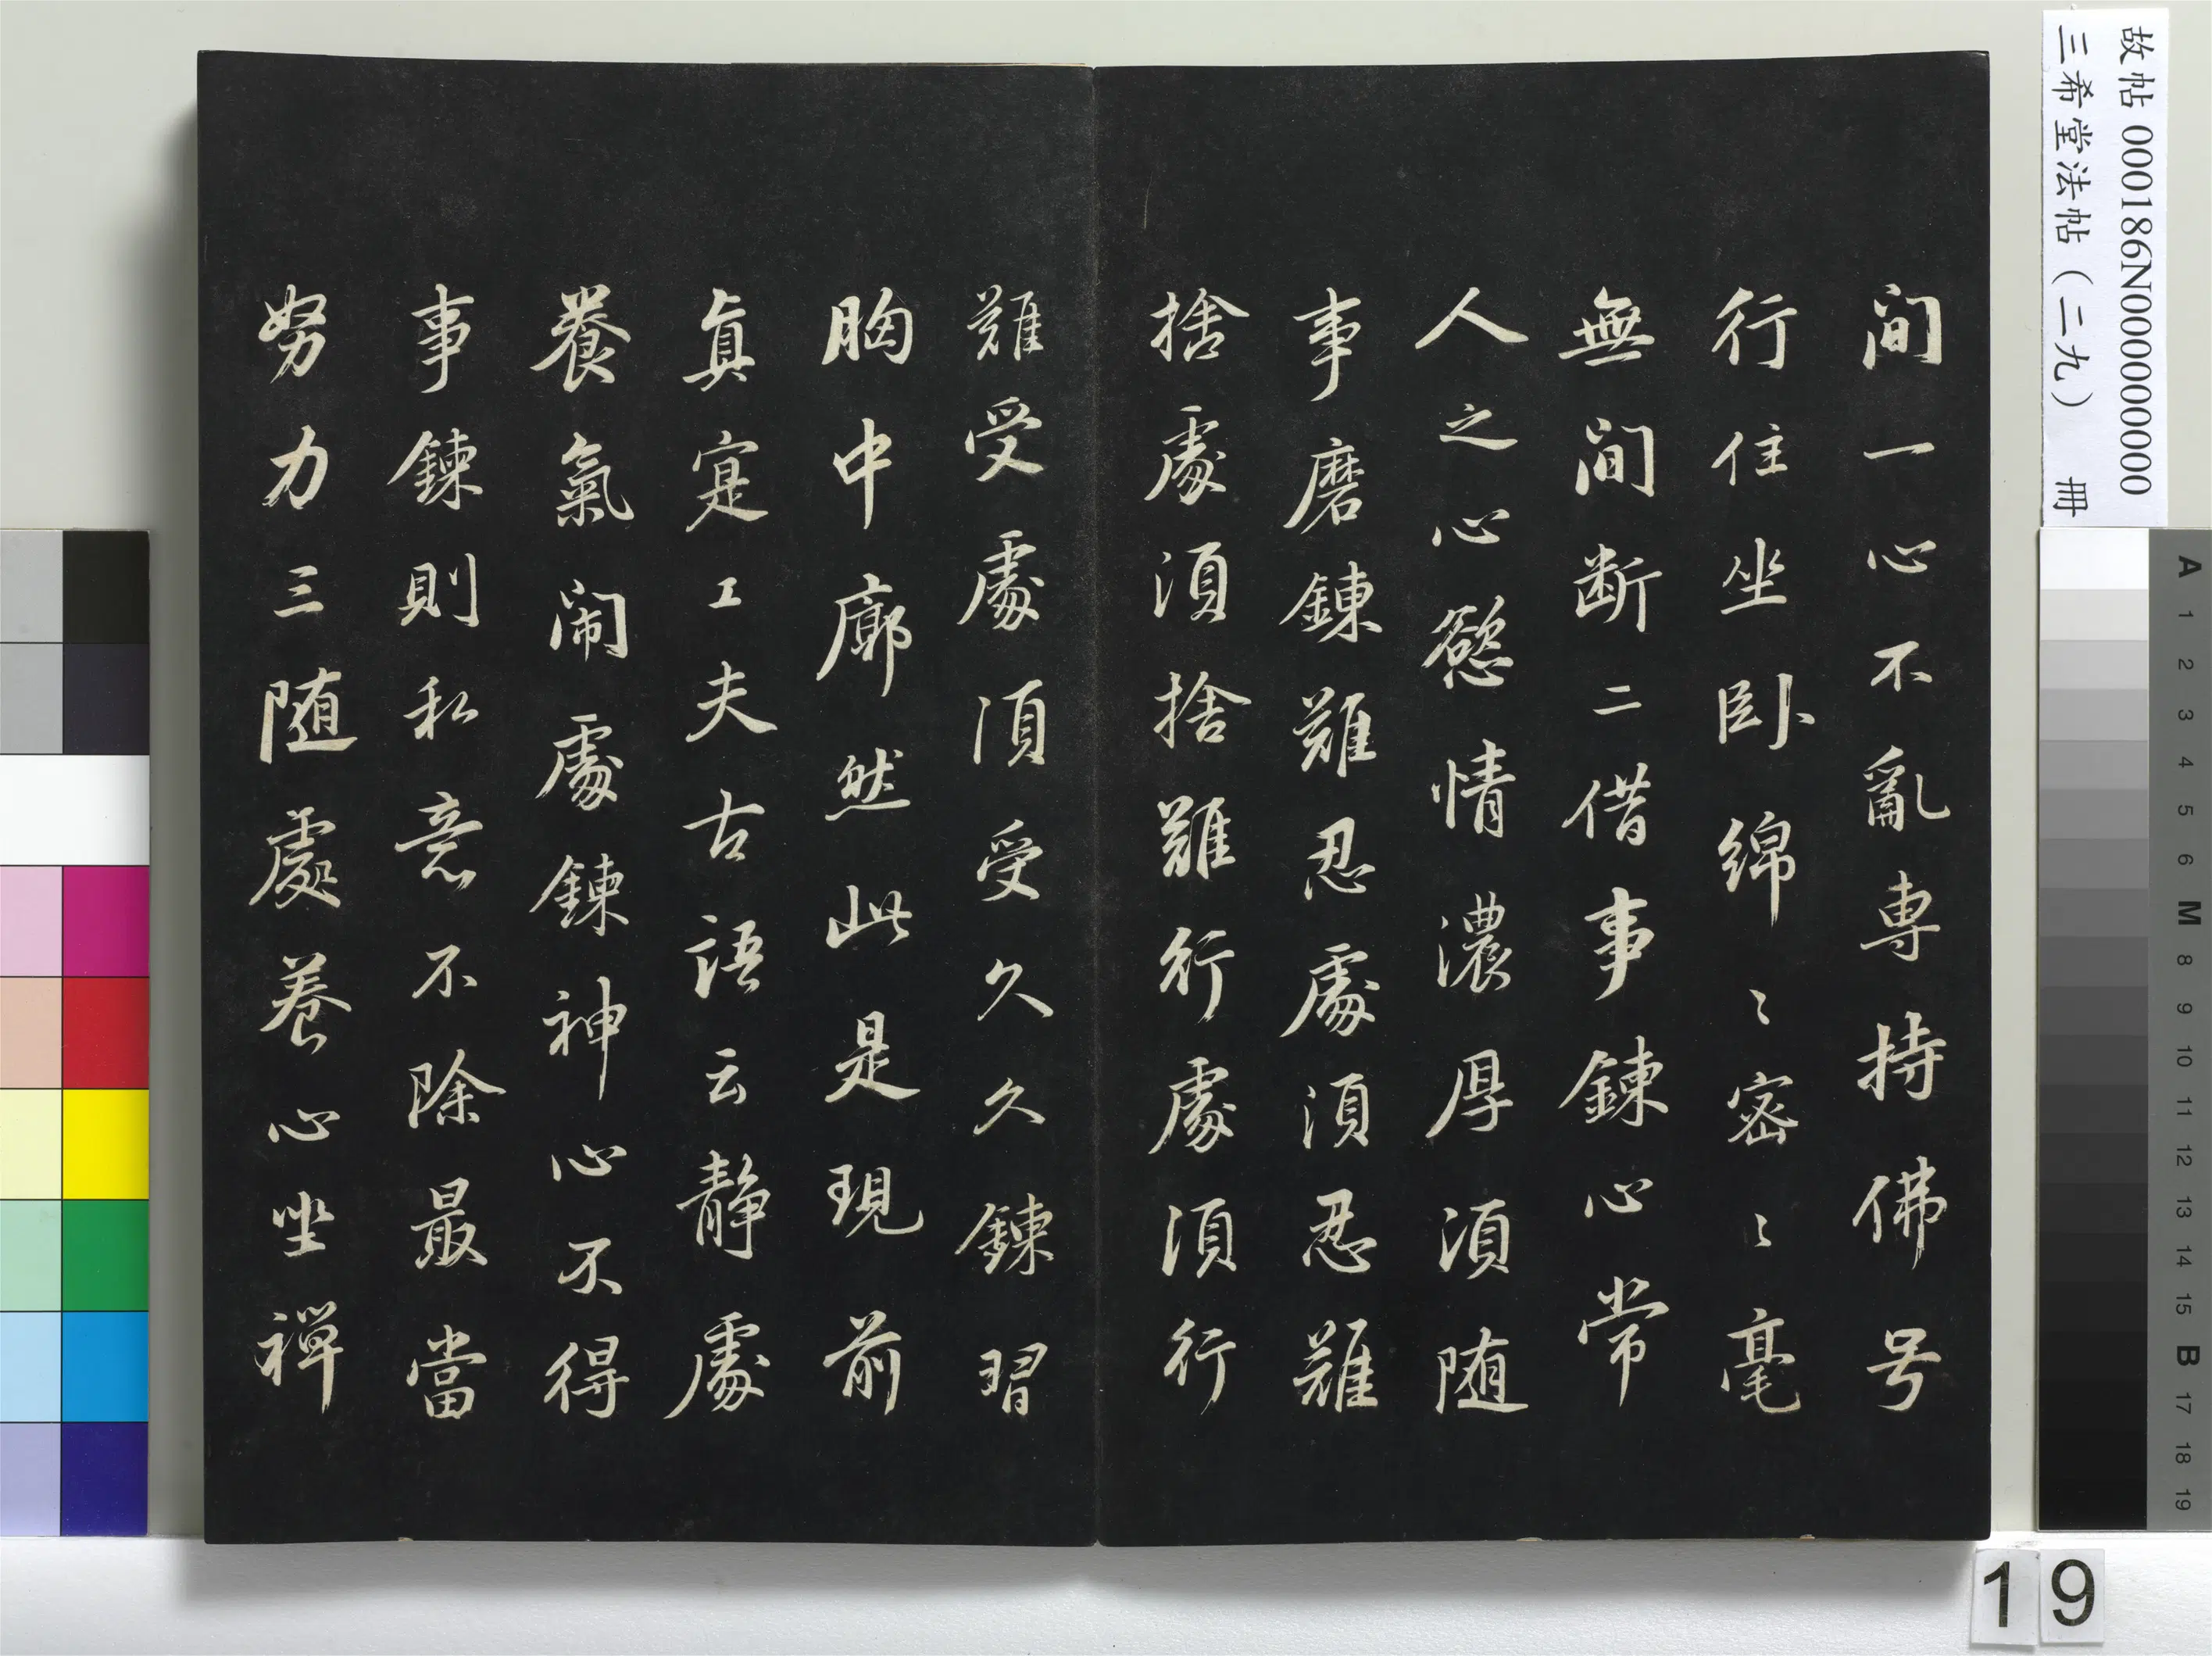 间一心不亂専持佛号
行住坐卧綿〻密〻毫
無间断二借事鍊心常
人之心慾情濃厚須随
事磨鍊難忍處須忍難
捨處須捨難行處須行
難受處須受久久鍊習
胸中廓然此是現前
真寔工夫古語云静處
養氣闹處鍊神心不得
事鍊則私意不除最當
努力三随處養心坐禅
故帖 000186N000000000
三希堂法帖(二九) 冊
19
A 1 2 3 4 5 6 M 8 9 10 11 12 13 14 15 B 17 18 19